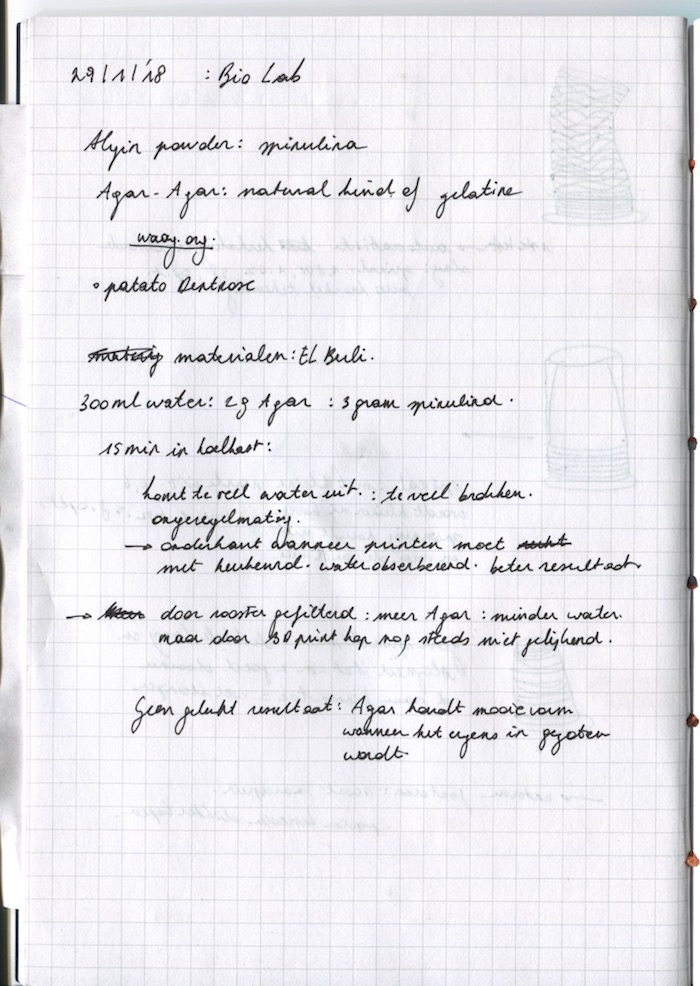 29/1/'18 : Bio Lab
Algin powder: spirulina
Agar-Agar: natural kind of gelatine
waag.org.
° patato Dextrose
materialen: EL Buli.
300ml water: 2g Agar : 3 gram spirulina.
15 min in koelkast:
komt te veel water uit. : te veel brokken.
ongeregelmatig.
→ onderkant wanneer printen moet
met keukenrol. waterobserberend. beter resultaat.
→ door rooster gefilterd : meer Agar : minder water.
maar door 3D print kop nog steeds niet gelijkend.
Geen gelukt resultaat: Agar houdt mooie vorm
wanneer het ergens in gegoten
wordt